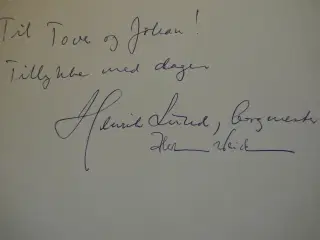 Til Tove og Johan!
Tillykke med dagen
Henrik Lund, borgmester